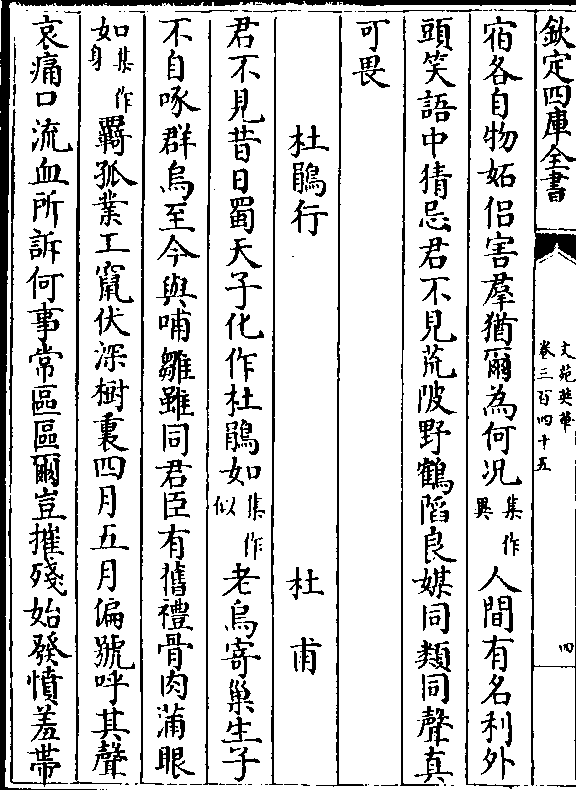 欽定四庫全書
文苑英華
卷三百四十五
四
宿各自物妬侣害羣猶爾為何况集作異人間有名利外
頭笑語中猜忌君不見荒陂野鶴陷良媒同類同聲真
可畏
杜鵑行
杜甫
君不見昔日蜀天子化作杜鵑如集作似老烏寄巢生子
不自啄群烏至今與哺雛雖同君臣有舊禮骨肉滿眼
如集作身羈孤業工竄伏深樹裏四月五月偏號呼其聲
哀痛口流血所訴何事常區區爾豈摧殘始發憤羞帶